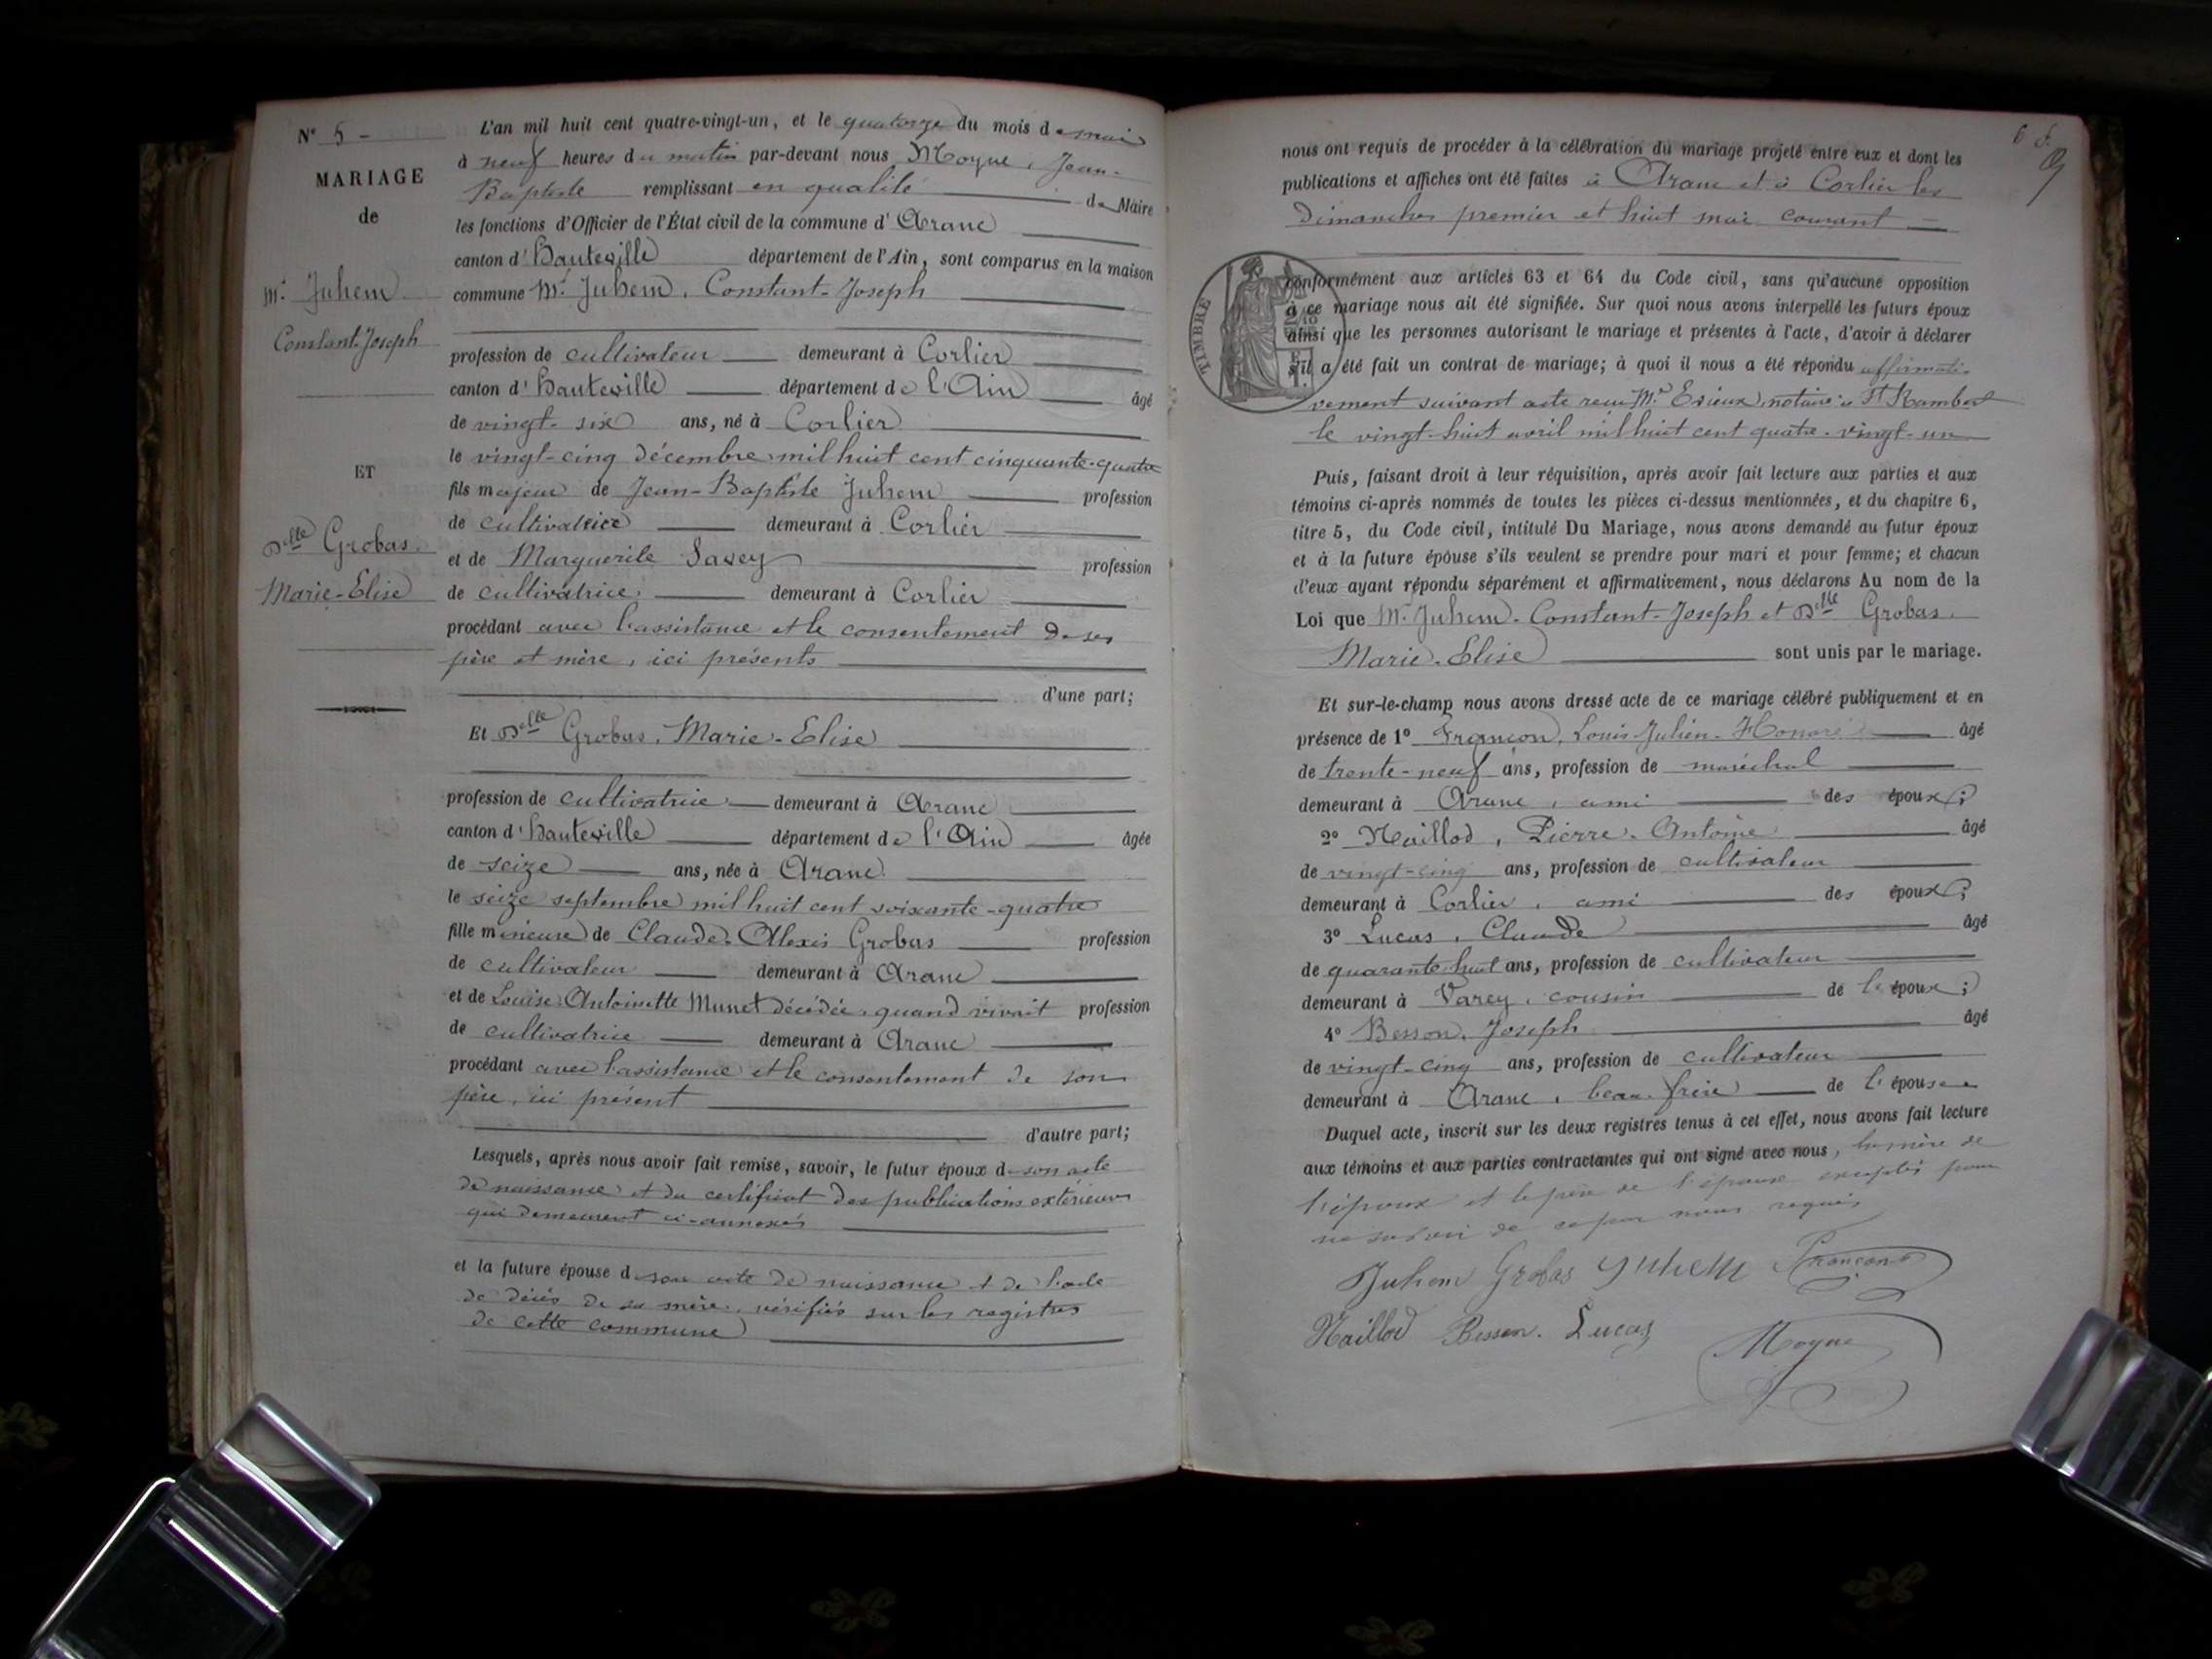 N° 5 -
MARIAGE
de
Mr. Juhem
Constant-Joseph
ET
Delle Grobas
Marie-Elise
L'an mil huit cent quatre-vingt-un, et le quatorze du mois de mai
à neuf heures du matin par-devant nous Moyne, Jean-
Baptiste remplissant en qualité de Maire
les fonctions d'Officier de l'État civil de la commune d'Aranc
canton d'Hauteville département de l'Ain, sont comparus en la maison
commune Mr. Juhem, Constant-Joseph
profession de cultivateur demeurant à Corlier
canton d'Hauteville département de l'Ain âgé
de vingt-six ans, né à Corlier
le vingt-cinq décembre mil huit cent cinquante-quatre
fils majeur de Jean-Baptiste Juhem profession
de cultivatrice demeurant à Corlier
et de Marguerite Savey profession
de cultivatrice demeurant à Corlier
procédant avec l'assistance et le consentement de ses
père et mère, ici présents
d'une part;
Et Delle Grobas, Marie-Elise
profession de cultivatrice demeurant à Aranc
canton d'Hauteville département de l'Ain âgée
de seize ans, née à Aranc
le seize septembre mil huit cent soixante-quatre
fille mineure de Claude-Alexis Grobas profession
de cultivateur demeurant à Aranc
et de Louise-Antoinette Munet décédée, quand vivait profession
de cultivatrice demeurant à Aranc
procédant avec l'assistance et le consentement de son
père, ici présent
d'autre part;
Lesquels, après nous avoir fait remise, savoir, le futur époux de son acte
de naissance et du certificat des publications extérieures
qui demeurent ci-annexés
et la future épouse de son acte de naissance et de l'acte
de décès de sa mère, vérifiés sur les registres
de cette commune
nous ont requis de procéder à la célébration du mariage projeté entre eux et dont les
publications et affiches ont été faites à Aranc et à Corlier les
dimanches premier et huit mai courant
TIMBRE
conformément aux articles 63 et 64 du Code civil, sans qu'aucune opposition
à ce mariage nous ait été signifiée. Sur quoi nous avons interpellé les futurs époux
ainsi que les personnes autorisant le mariage et présentes à l'acte, d'avoir à déclarer
s'il a été fait un contrat de mariage; à quoi il nous a été répondu affirmati-
vement suivant acte reçu Me notaire à St Rambert
le vingt-huit avril mil huit cent quatre-vingt-un
Puis, faisant droit à leur réquisition, après avoir fait lecture aux parties et aux
témoins ci-après nommés de toutes les pièces ci-dessus mentionnées, et du chapitre 6,
titre 5, du Code civil, intitulé Du Mariage, nous avons demandé au futur époux
et à la future épouse s'ils veulent se prendre pour mari et pour femme; et chacun
d'eux ayant répondu séparément et affirmativement, nous déclarons Au nom de la
Loi que Mr. Juhem-Constant-Joseph et Delle Grobas
Marie-Elise sont unis par le mariage.
Et sur-le-champ nous avons dressé acte de ce mariage célébré publiquement et en
présence de 1° Françon, Louis-Julien-Honoré âgé
de trente-neuf ans, profession de maréchal
demeurant à Aranc, ami des époux;
2° Maillod, Pierre-Antoine âgé
de vingt-cinq ans, profession de cultivateur
demeurant à Corlier, ami des époux;
3° Lucas, Claude âgé
de quarante huit ans, profession de cultivateur
demeurant à Varey, cousin de l'époux;
4° Besson, Joseph âgé
de vingt-cinq ans, profession de cultivateur
demeurant à Aranc, beau-frère de l'épouse
Duquel acte, inscrit sur les deux registres tenus à cet effet, nous avons fait lecture
aux témoins et aux parties contractantes qui ont signé avec nous, la mère de
l'époux et le père de l'épouse exceptés pour
ne savoir de ce par nous requis
Juhem Grobas Juhem Françon
Maillod Besson. Lucas
Moyne